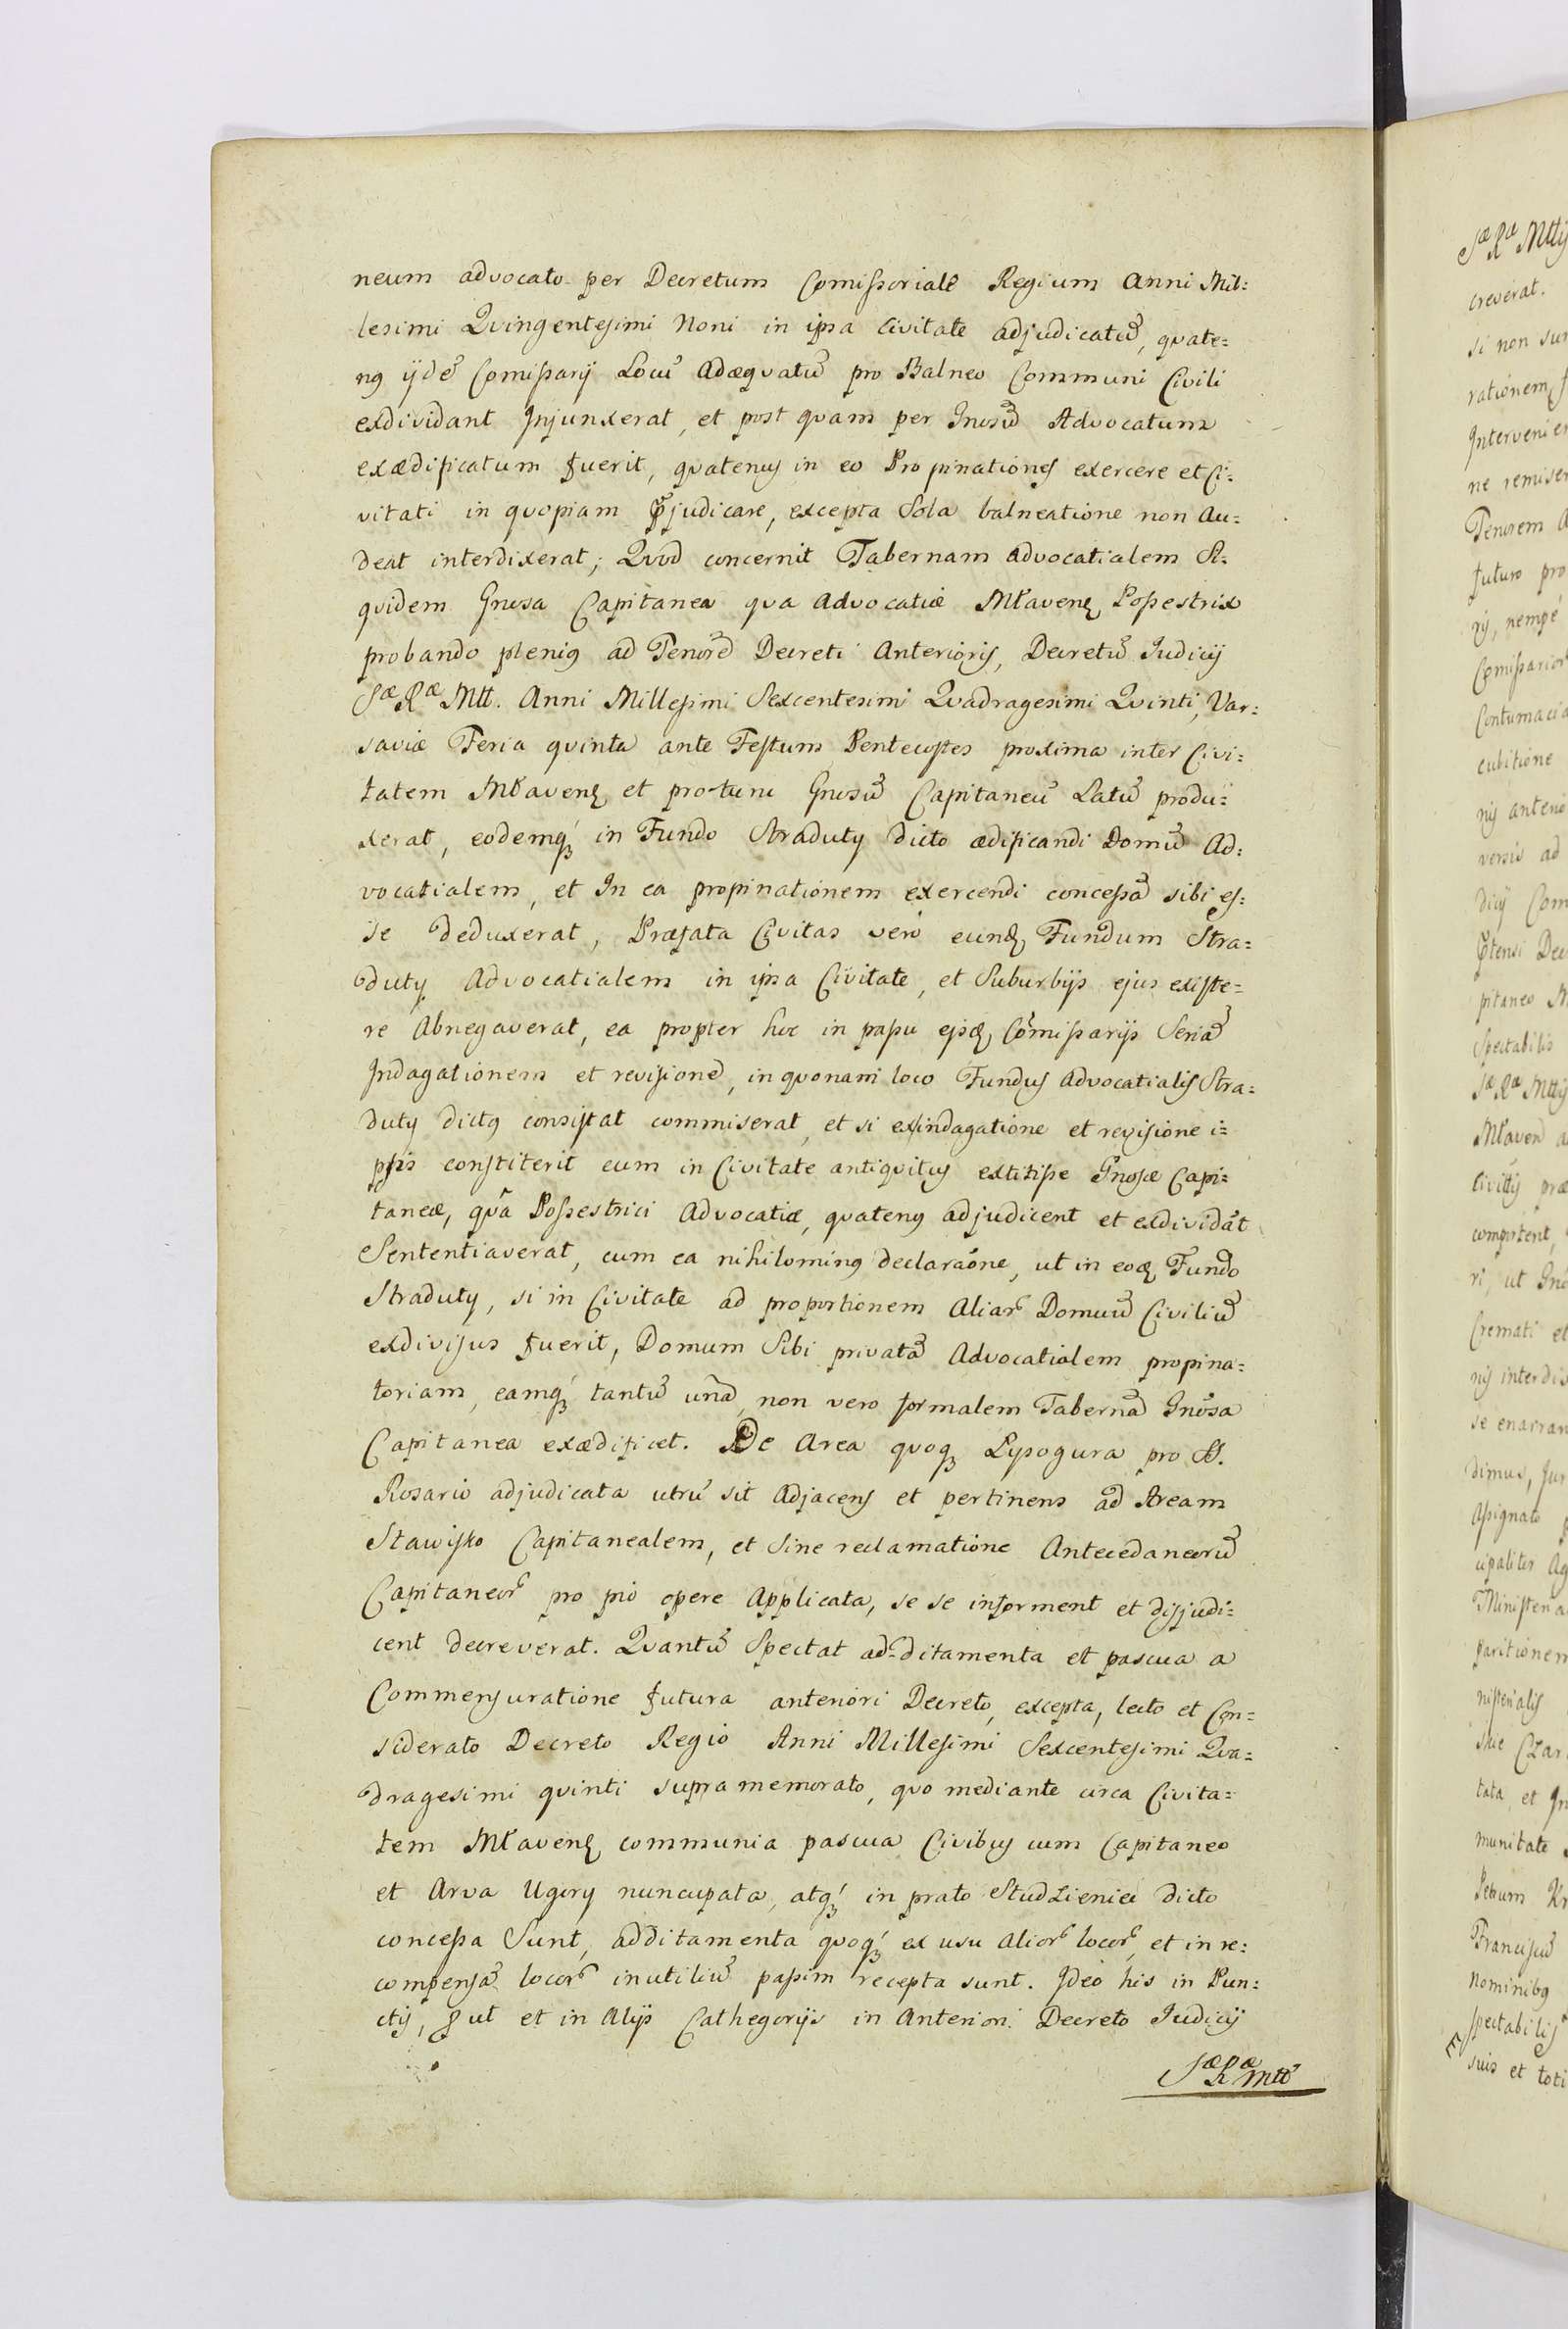 neum advocato per Decretum Comissoriale Regium Anni Mil=
lesimi Qvingentesimi Noni in ipsa Civitate adjudicatũ, quate=
nꝰ ijdẽ Comissarij Locũ Adæqvatũ pro Balneo Communi Civili
exdividant Injunxerat, et post quam per Gnosũ Advocatum
exædificatum fuerit, quatenus in eo Propinationes exercere et Ci=
vitati in quopiam p̃judicare, excepta Sola balneatione non Au=
deat interdixerat; Qvod concernit Tabernam Advocatialem Si=
qvidem Gnosa Capitanea qua Advocatiæ Mławenꝫ Possestrix
probando pleniꝰ ad Tenorẽ Decreti Anterioris, Decretũ Judicij
Sæ Ræ Mtt. Anni Millesimi Sexcentesimi Qvadragesimi Qvinti, Var=
saviæ Feria quinta ante Festum Pentecostes proxima inter Civi=
tatem Młavenꝫ et pro-tunc Gnosũ Capitaneũ Latũ produ=
xerat, eodemqꝫ in Fundo Straduty dicto ædificandi Domũ Ad=
vocatialem, et In ea propinationem exercendi concessã sibi es=
se deduxerat, Præfata Civitas verò eundꝫ Fundum Stra=
duty Advocatialem in ipsa Civitate, et Suburbijs ejus existe=
re Abnegaverat, ea propter hoc in passu ejsdꝫ Cõmissarijs Seriã
Indagationem et revisionẽ, in quonam loco Fundus Advocatialis Stra=
duty dictꝰ consistat commiserat, et si ex indagatione et revisione i=
psis constiterit eum in Civitate antiquitus extitisse Gnosæ Capi=
taneæ, quã Possestrici Advocatiæ, quatenꝰ adjudicent et exdividãt
Sententiaverat, cum ea nihilominꝰ declaraõne, ut in eodꝫ Fundo
Straduty, si in Civitate ad proportionem Aliarũ Domuũ Civiliũ
exdivisus fuerit, Domum Sibi privatã Advocatialem propina=
toriam, eamqꝫ tantũ unã, non vero formalem Tabernã Gnosa
Capitanea exædificet. De Area quoqꝫ Lysogura pro S.
Rosario adjudicata utrũ sit Adjacens et pertinens ad Aream
Stawisko Capitanealem, et Sine reclamatione Antecedaneorũ
Capitaneorũ pro pio opere Applicata, se se informent et disjudi=
cent decreverat. Qvantũ Spectat ad-ditamenta et pascua a
Commensuratione futura anteriori Decreto, excepta, lecto et Con=
siderato Decreto Regio Anni Millesimi Sexcentesimi Qva=
dragesimi quinti supra memorato, quo mediante circa Civita=
tem Młavenꝫ communia pascua Civibus cum Capitaneo
et Arva Ugory nuncupata, atqꝫ in prato Studzieniec dicto
concessa Sunt, additamenta quoqꝫ ex usu Aliorũ locorũ, et in re=
compensã locorũ inutiliũ passim recepta sunt. Ideò his in Pun=
ctis, put et in Alijs Cathegorijs in Anteriori Decreto Judicij
Sæ Ræ Mtt
Sæ Ræ Mttis
creverat.
si non
rationem
ne
Tenorem
futuro pro
rij, nempè
Contumacia
nis
versùs ad
dicij Com
pitaneo
Spectabilis
Sæ Ræ Mttis
Młaven
competent,
ri, ut
Cremati et
nis
se
dimus,
Assignato
Ministeria
nisterialis
tata, et
munitate
Petrum
nominibꝰ
spectabilis
suis et toti